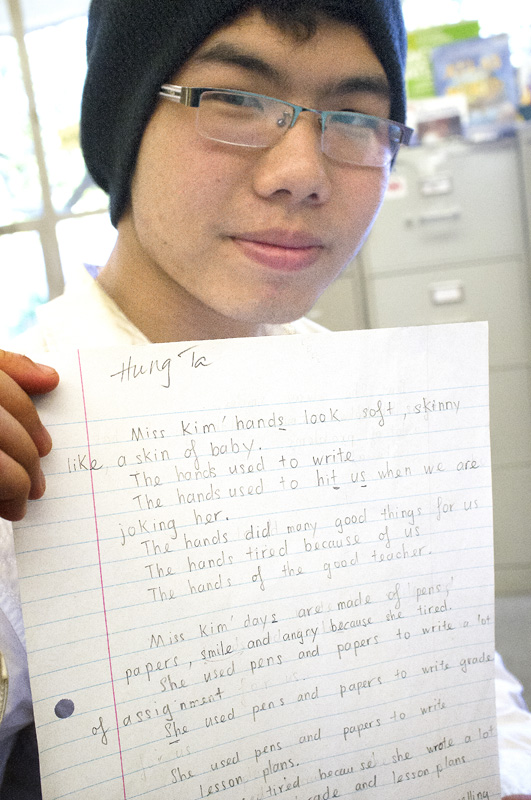 Hung Ta
Miss Kim' hands look soft, skinny
like a skin of baby.
The hands used to write
The hands used to hit us when we are
joking her.
The hands did many good things for us
The hands tired because of us
The hands of the good teacher.
Miss Kim' days are made of 'pens,'
papers, smile and angry because she tired.
She used pens and papers to write a lot
of assignment
She used pens and papers to write grade
She used pens and papers to write
lesson plans.
tired because she wrote a lot
grade and lesson plans